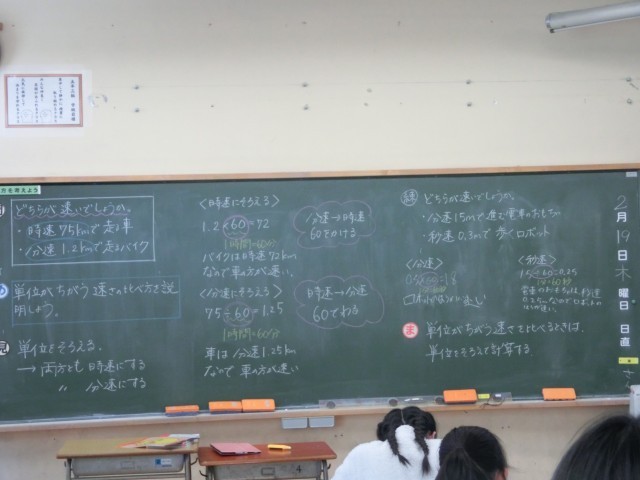 方を考えよう
どちらが速いでしょうか。
・時速75kmで走る車
・分速1.2kmで走るバイク
単位がちがう速さのくらべ方を説
明しよう。
単位をそろえる。
→ 両方とも 時速にする
〃 分速にする
〈時速にそろえる〉
1.2×60=72
1時間=60分
バイクは時速72km
なので車の方が速い。
〈分速にそろえる〉
75÷60=1.25
1時間=60分
車は分速1.25km
なので 車の方が速い
分速→時速
60をかける
時速→分速
60でわる
練 どちらが速いでしょうか。
・分速15mで進む電車のおもちゃ
・秒速0.3mで歩くロボット
〈分速〉
〈秒速〉
15÷60=0.25
ま 単位がちがう速さをくらべるときは、
単位をそろえて計算する。
2月19日木曜日
日直
4